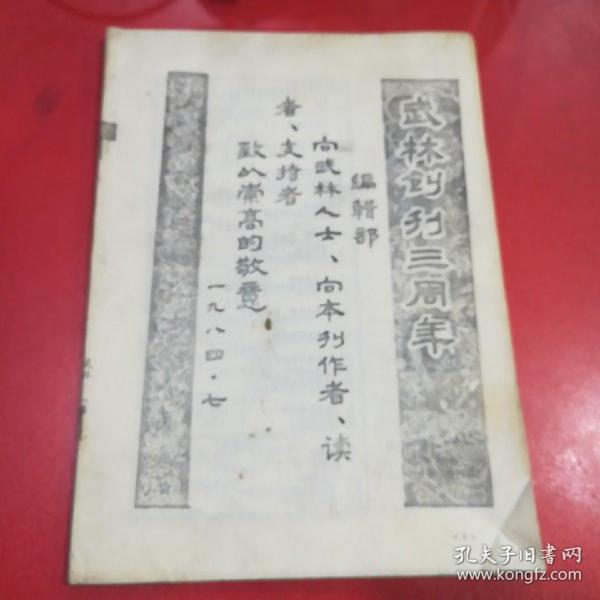 武林创刊三周年
编辑部
向武林人士、向本刊作者、读
者、支持者
致以崇高的敬意
一九八四·七
孔夫子旧书网
www.kongfz.com